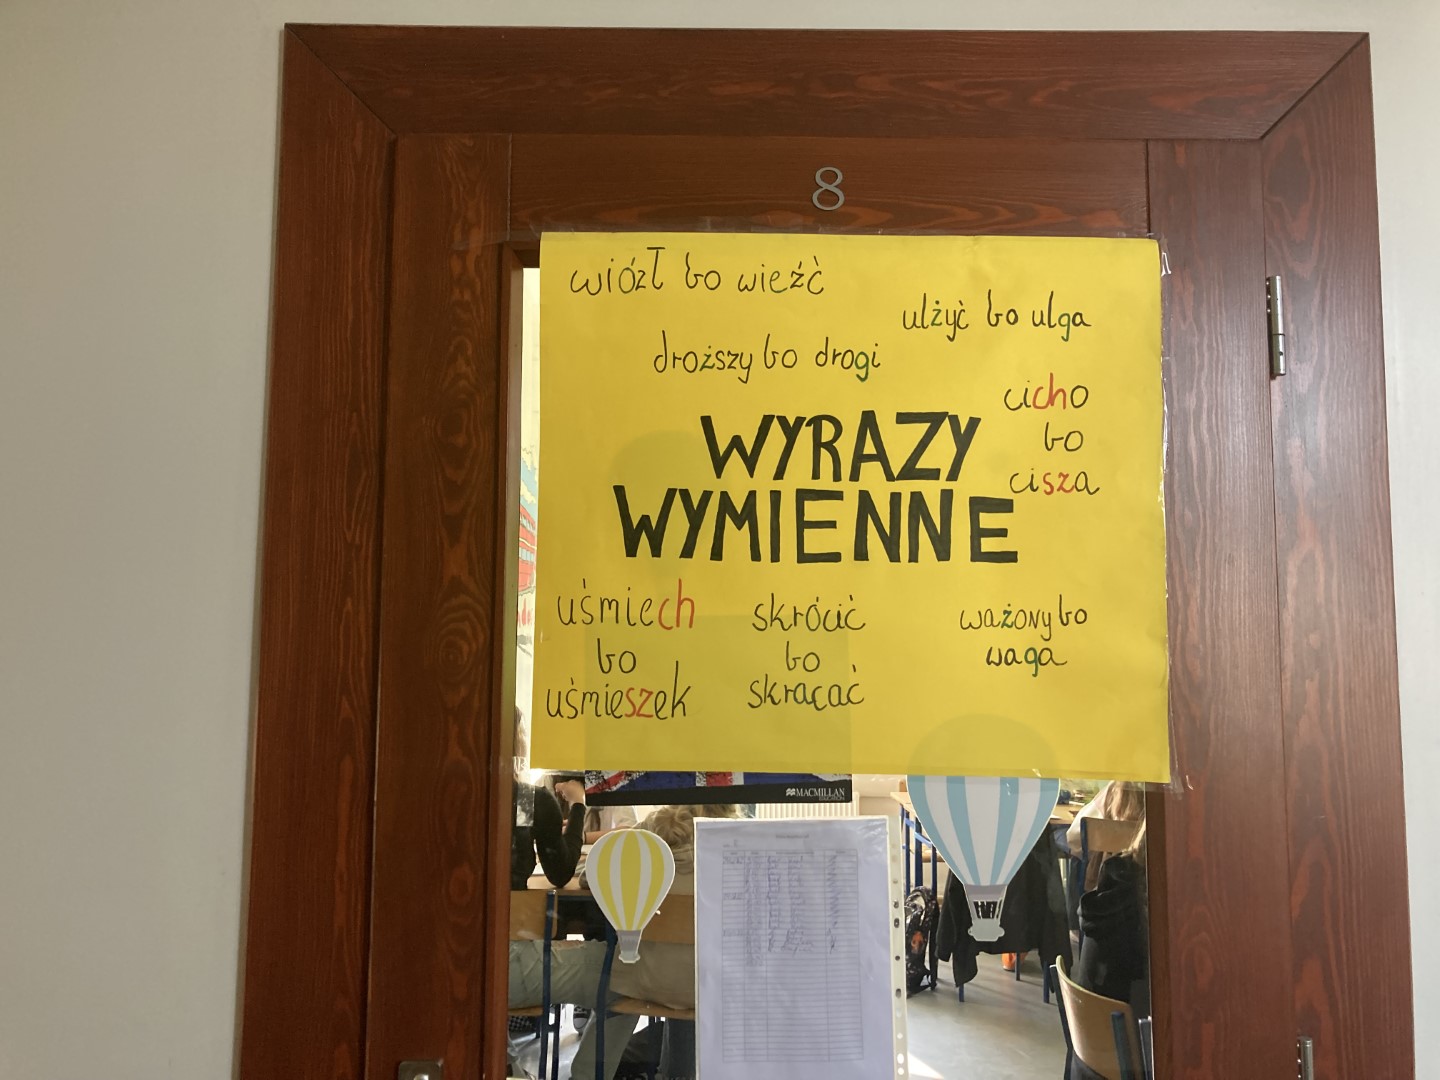 8
wiózł bo wieźć
ulżyć bo ulga
droższy bo drogi
cicho
bo
cisza
WYRAZY
WYMIENNE
uśmiech
bo
uśmieszek
skrócić
bo
skracać
ważony bo
waga
MACMILLAN
EDUCATION